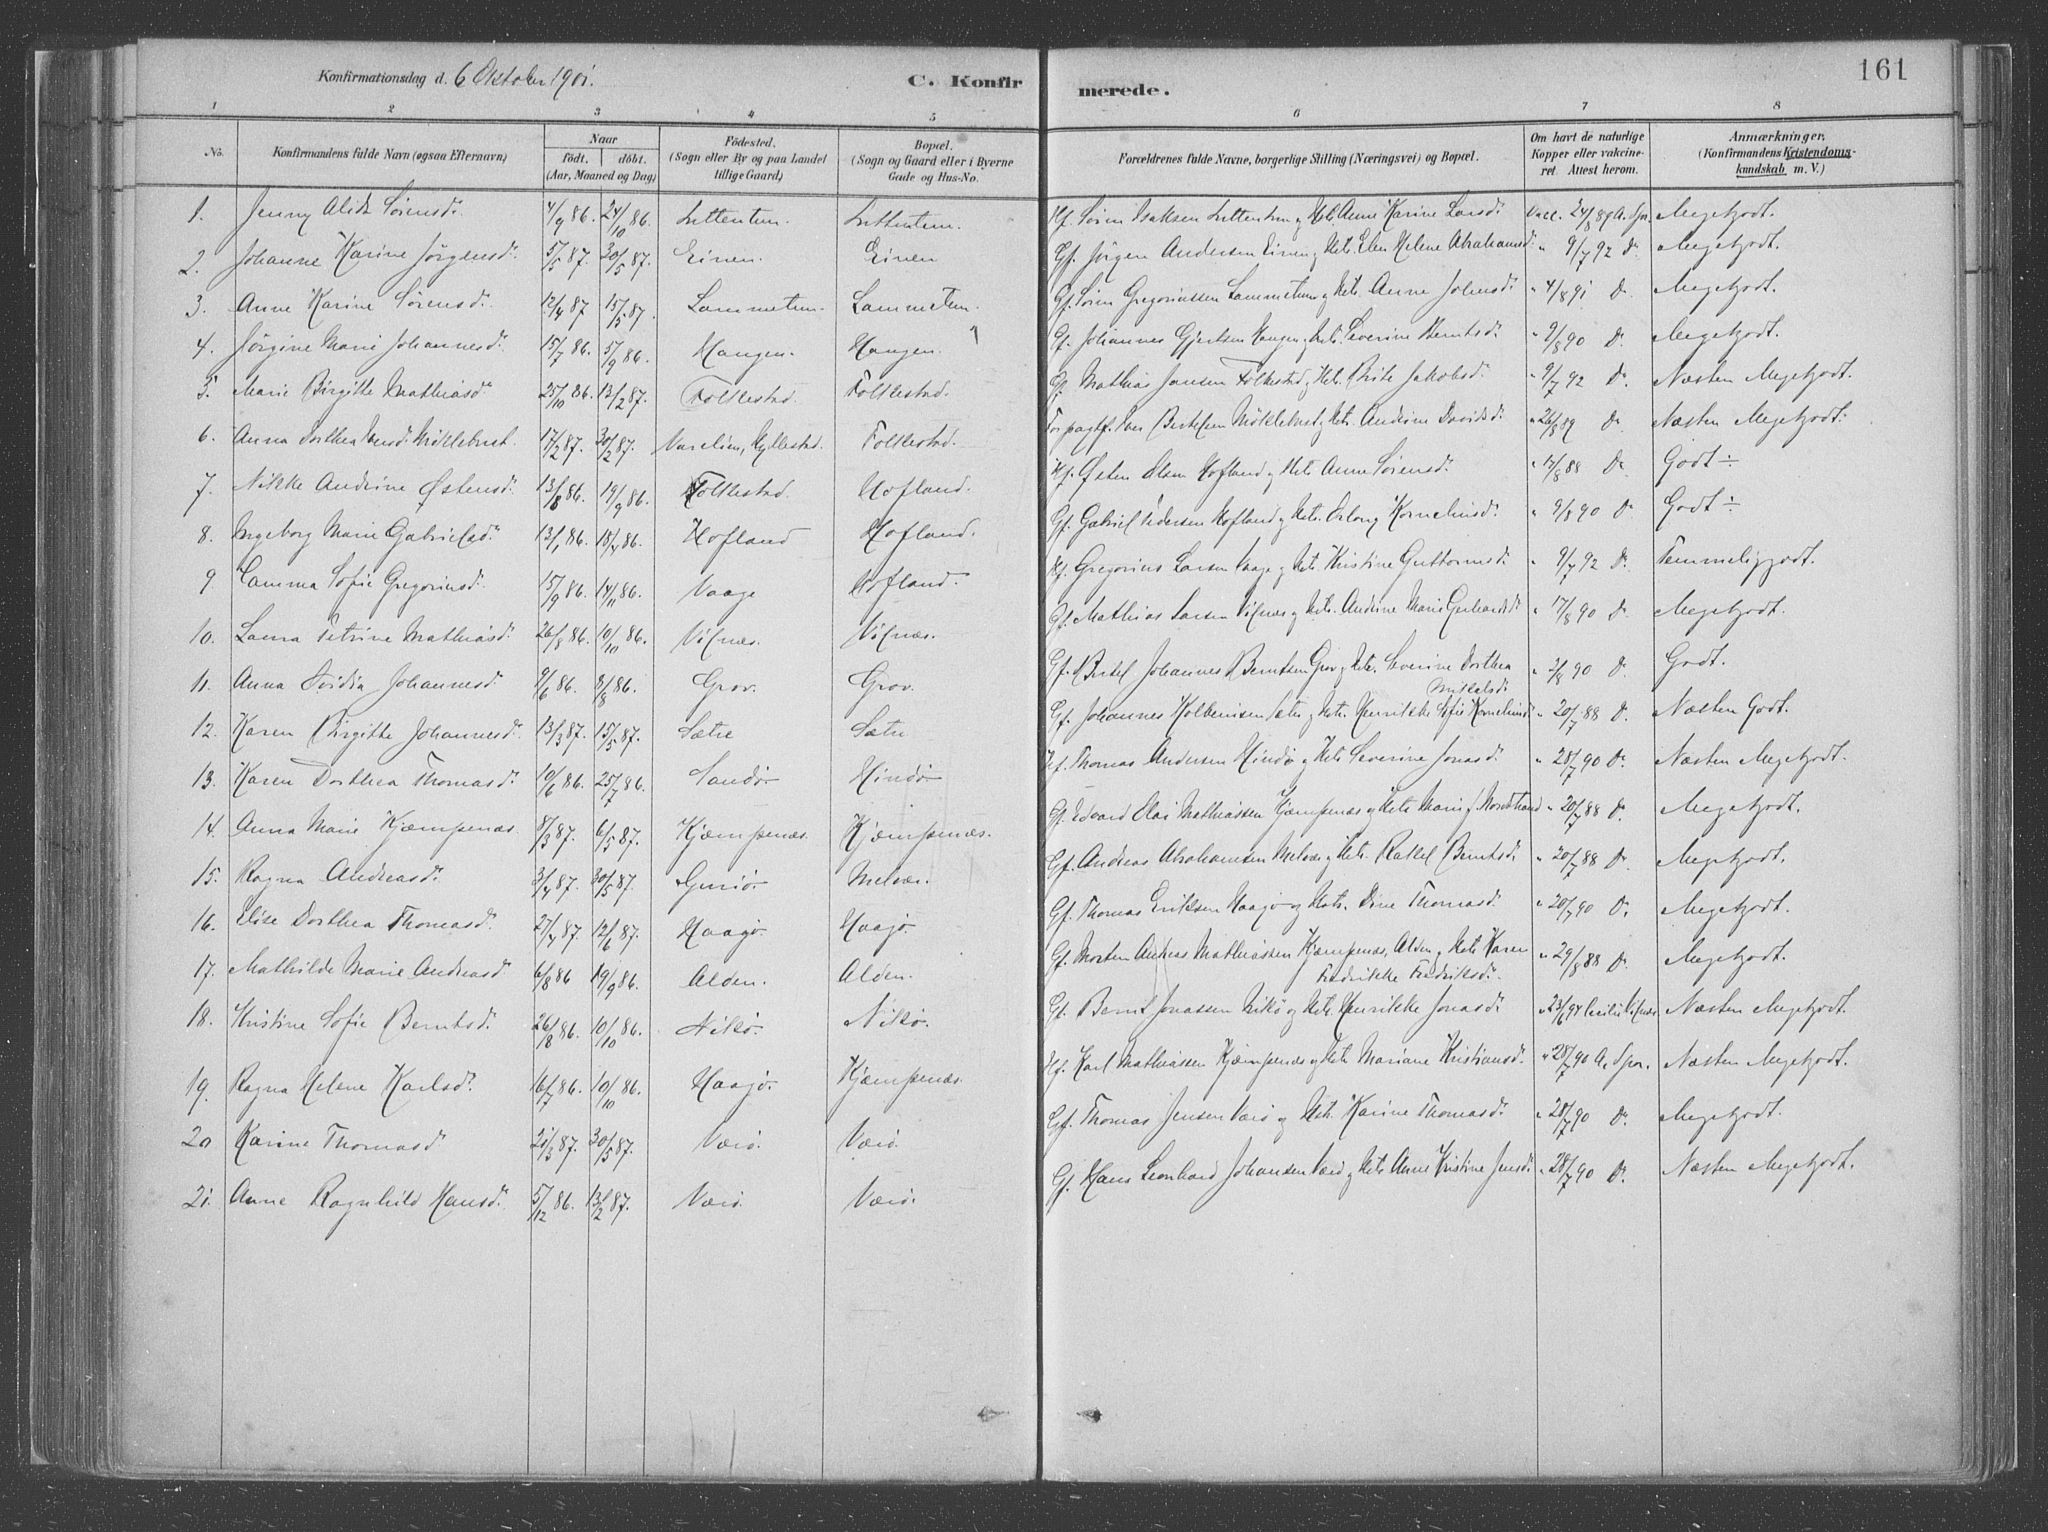 161
Konfirmationsdag d. 6 Oktober 1901.
C. Konfirmerede.
1 2 3 4 5 6 7 8
No. Konfirmandens fulde Navn (ogsaa Efternavn) Naar födt. döbt. (Aar, Maaned og Dag) Födested. (Sogn eller By og paa Landet tillige Gaard) Bopæl. (Sogn og Gaard eller i Byerne Gade og Hus-No. Forældrenes fulde Navne, borgerlige Stilling (Næringsvei) og Bopæl. Om havt de naturlige Kopper eller vakcineret Attest herom. Anmærkninger. (Konfirmandens Kristendomskundskab m. V.)
1. Jenny Alida Sörensd. 4/9 86. 24/10 86. Littentun. Littentun. Hf. Sören Isaksen Littentun og Hst. Anne Karine Larsd. Vacc. 24/8 89 A. Spr. Megetgodt.
2. Johanne Karine Jörgensd. 5/5 87. 30/5 87. Einen. Einen Gf. Jörgen Andersen Einen og Hst. Elen Helene Abrahamsd. " 9/7 92 Do. Megetgodt.
3. Anne Karine Sörensd. 12/4 87 15/5 87. Lammetun. Lammetun. Gf. Sören Gregoriussen Lammetun og Hst. Anne Johnsd. " 4/8 91 Do. Megetgodt.
4. Jörgine Marie Johannesd. 15/7 86. 5/9 86. Haugen. Haugen. Gf. Johannes Gjertsen Haugen og Hst. Severine Berntsd. " 9/8 90 Do. Megetgodt.
5. Marie Birgitte Mathiasd 25/10 86. 13/2 87. Folkestad. Folkestad. Gf. Mathias Jansen Folkestad og Hst. Brite Jakobsd. " 9/7 92 Do. Næsten Megetgodt.
6. Anna Dorthea Iversd. Möklebust. 17/2 87. 30/2 87. Hyllestad. Folkestad. Forpagtf. Iver Bertelsen Möklebust og Hst. Andrine Davidsd. " 26/8 89 Do. Næsten Megetgodt.
7. Nikke Andrine Østensd. 13/8 86. 19/9 86. Folkestad. Hofland. Hf. Østen Olsen Hofland og Hst. Anne Sörensd. " 17/8 88 Do. Godt ÷
8. Ingeborg Marie Gabrielsd. 13/1 86. 18/4 86. Hofland Hofland. Gf. Gabriel Pedersen Hofland og Hst. Korneliusd. " 9/8 90 Do. Godt ÷
9. Lamma Sofie Gregoriusd. 15/9 86. 14/11 86. Vaage Hofland. Hf. Gregorius Larsen Vaage og Hst. Kristine Guttormsd. " 9/7 92 Do. Temmeliggodt.
10. Laura Petrine Mathiasd. 26/8 86. 10/10 86. Vilnæs. Vilnæs. Gf. Mathias Larsen Vilnæs og Hst. Andrine Marie Gerhardsd. " 17/8 90 Do. Megetgodt.
11. Anna Johannesd. 9/6 86. 8/8 86. Grov. Grov. Gf. Bertel Johannes Berntsen Grov og Hst. Severine Dorthea " 2/8 90 Do. Godt.
12. Karen Birgitte Johannesd. 13/3 87. 15/5 87. Sætre Sætre Gf. Johannes Sætre og Hst. Henrikke Sofie Korneliusd. " 20/7 88 Do. Næsten Godt.
13. Karen Dorthea Thomasd. 10/6 86. 25/7 86. Sandö. Hindö. Hf. Thomas Andersen Hindö og Hst. Severine Jonasd. " 28/7 90 Do. Næsten Megetgodt.
14. Anna Marie Kjæmpenæs. 8/3 87. 6/5 87. Kjæmpenæs. Kjæmpenæs. Gf. Edvard Elai Mathiassen Kjæmpenæs og Hst. Marie f. Nordstrand " 20/7 88 Do. Megetgodt.
15. Ragna Andreasd. 3/4 87. 30/5 87. Melvær. Gf. Andreas Abrahamsen Melvær og Hst. Rakel Berntsd. " 20/7 88 Do. Megetgodt.
16. Elise Dorthea Thomasd. 27/4 87. 12/6 87. Haagö. Haagö. Gf. Thomas Eriksen Haagö og Hst. Dine Thomasd. " 20/7 90 Do. Megetgodt.
17. Mathilde Marie Andreasd 6/8 86 19/9 86. Alden. Alden. Gf. Morten Andreas Mathiassen Kjæmpenæs, Alden og Hst. Karen Fredrikke Fredriksd. " 29/8 88 Do. Megetgodt.
18. Kristine Sofie Berntsd. 26/8 86. 10/10 86. Nikö. Nikö. Gf. Bernt Jonassen Nikö og Hst. Henrikke Jonasd. " 23/6 94 Cecilie Vilnæs. Næsten Megetgodt.
19. Ragna Helene Karlsd. 16/7 86. 10/10 86. Haagö. Kjæmpenæs. Hf. Karl Mathiassen Kjæmpenæs og Hst. Mariane Kristiansd. " 28/7 90 A. Spr. Næsten Megetgodt.
20 Karine Thomasd 21/3 87. 30/5 87. Værö. Værö. Gf. Thomas Jensen Værö og Hst. Karine Thomasd. " 28/7 90 Do. Megetgodt.
21. Anne Ragnhild Hansd. 5/12 86. 13/2 87. Værö. Værö. Gf. Hans Leonhard Johansen Værö og Hst. Anne Kristine Jensd. " 28/7 90 Do. Næsten Megetgodt.